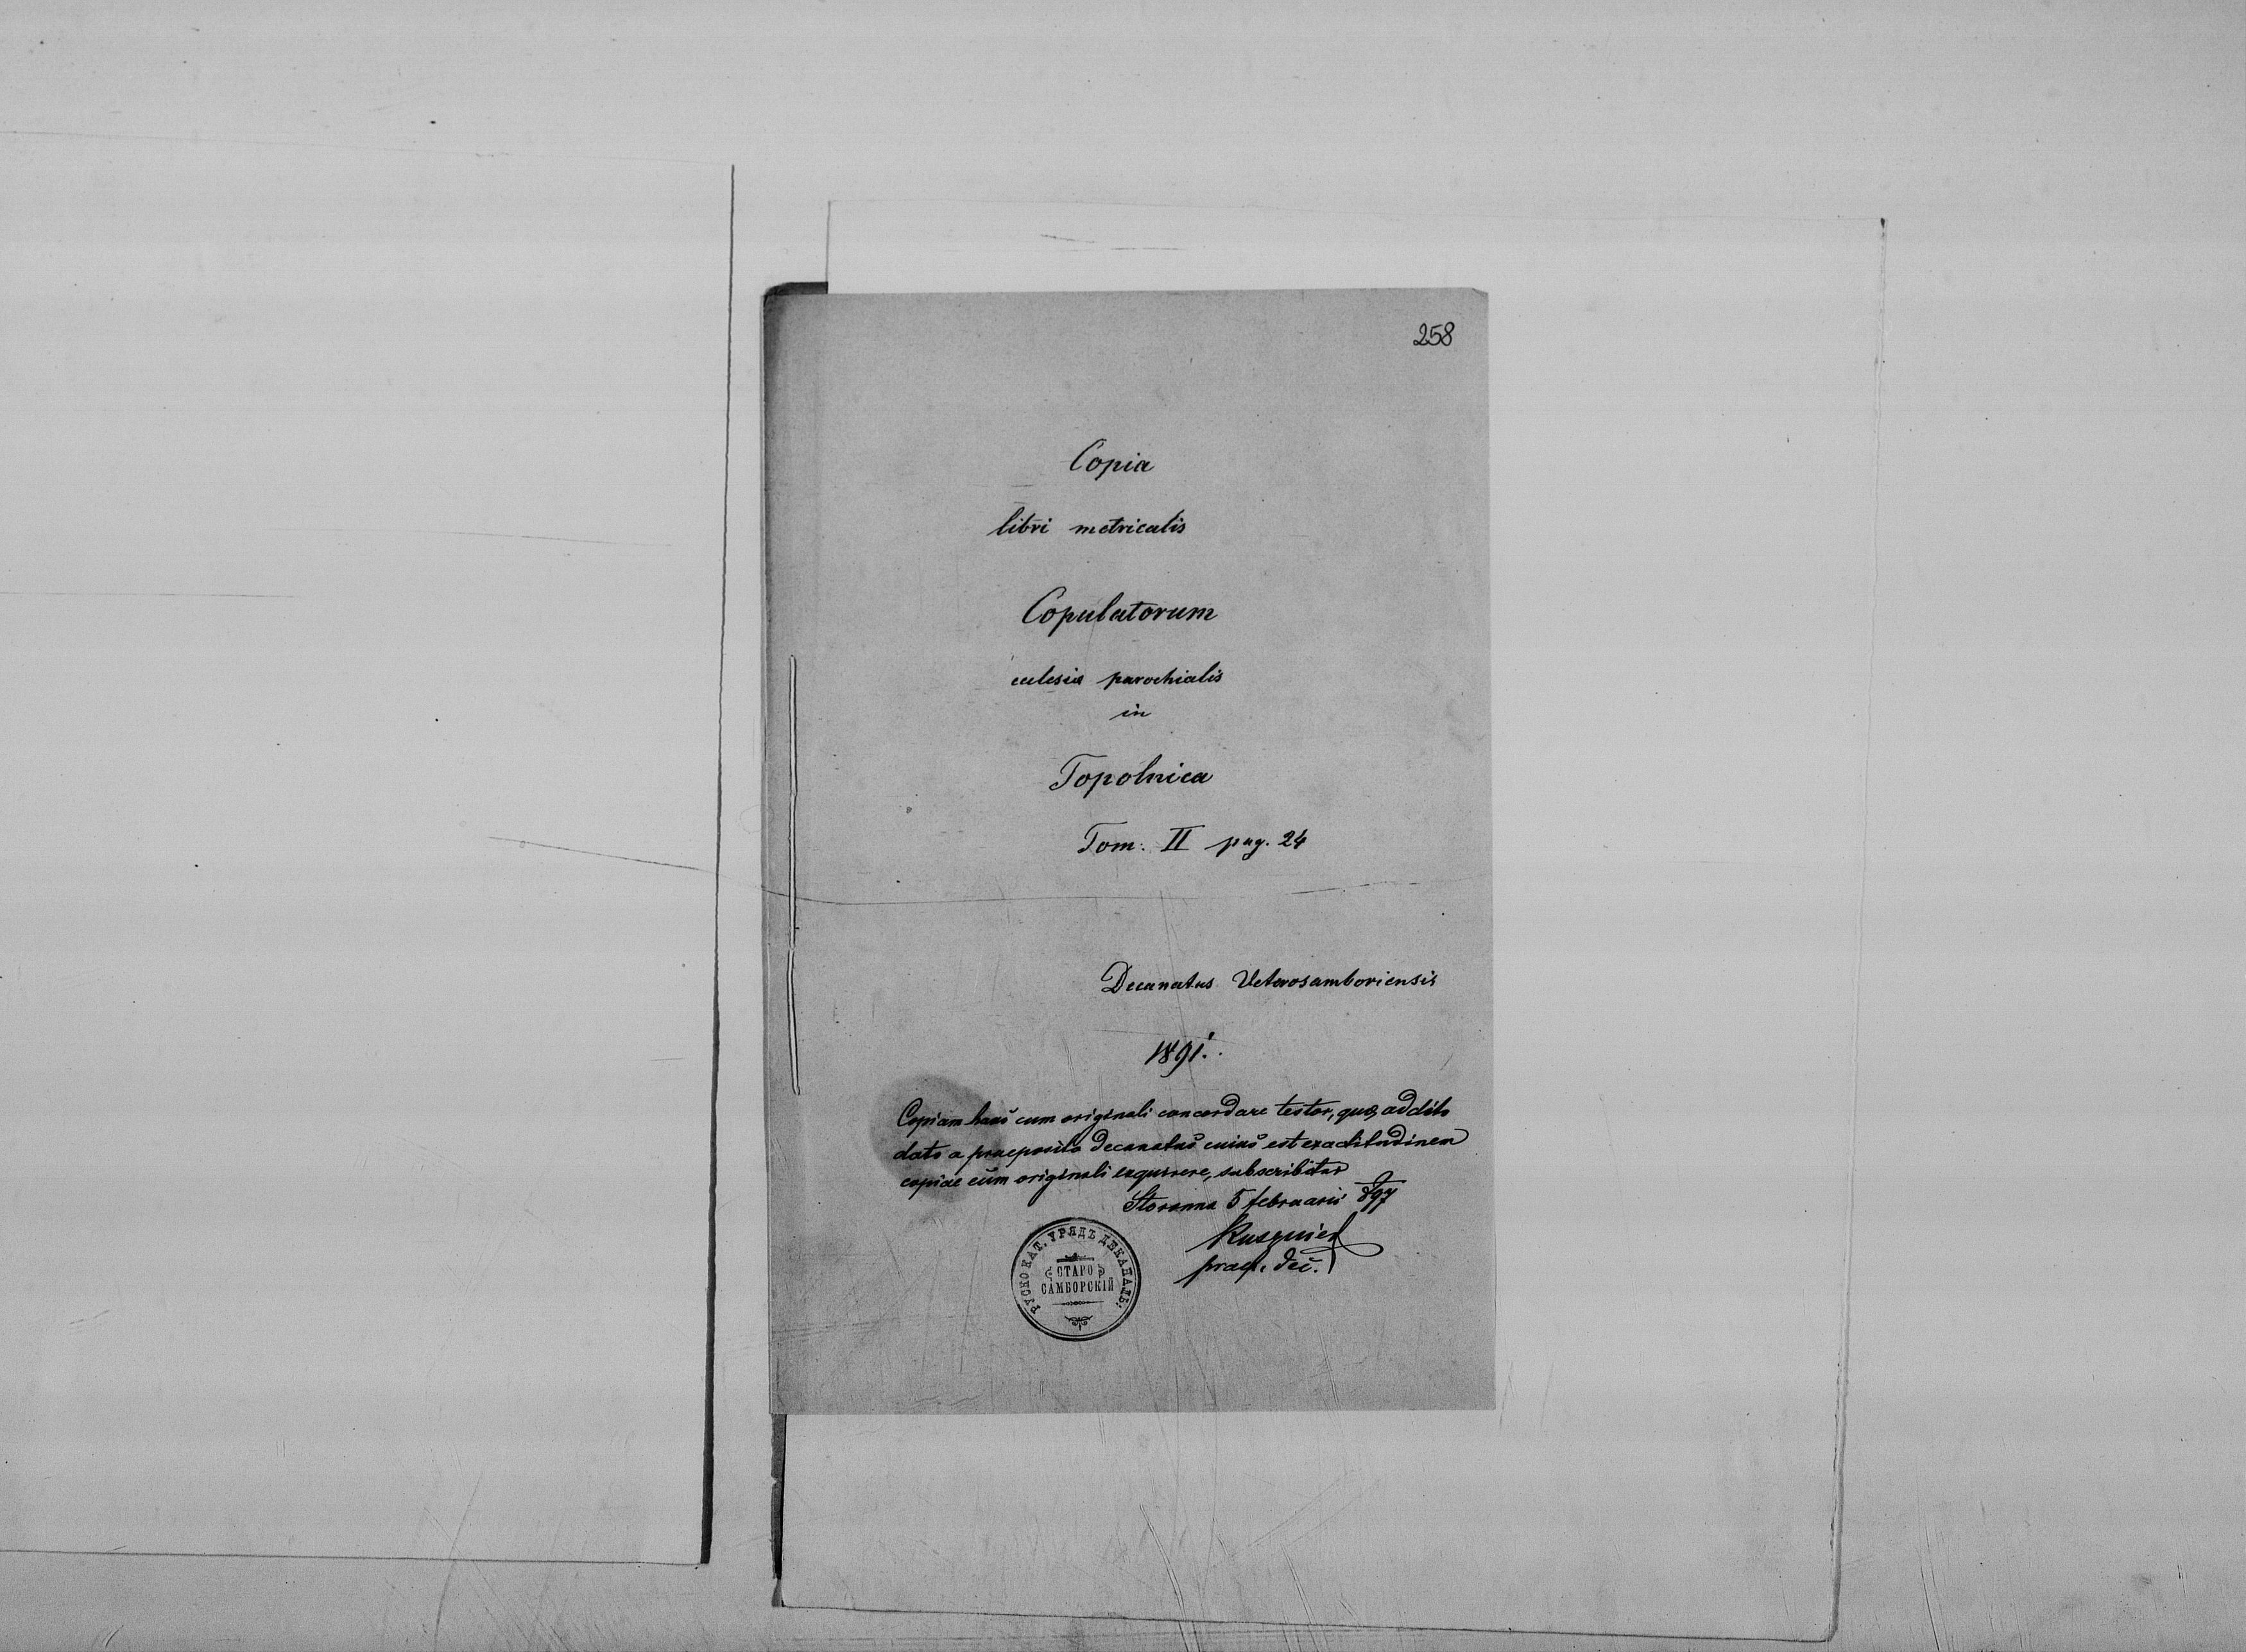 258
Copia
libri metricalis
Copulatorum
eclesia parochialis
in
Topolnica
Tom: II pag. 24
Decanatus Veterosamboriensis
1891.
Copiam hanc cum originali concordare testor, quo addito
dato a praeposito decanatus cuius est exactitudinem
copiae cum originali exquirere, subscribitur
Storonna 5 februarii 897
praep. dec.
РУСКО КАТ. УРЯДЪ ДЕКАНАЛЬ:
СТАРО
САМБОРСКІЙ